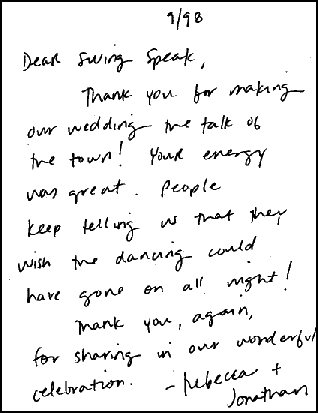 9/98
Dear Swing Speak,
Thank you for making
our wedding the talk of
the town! Your energy
was great. People
keep telling us that they
wish the dancing could
have gone on all night!
Thank you, again,
for sharing in our wonderful
celebration. - Rebecca +
Jonathan